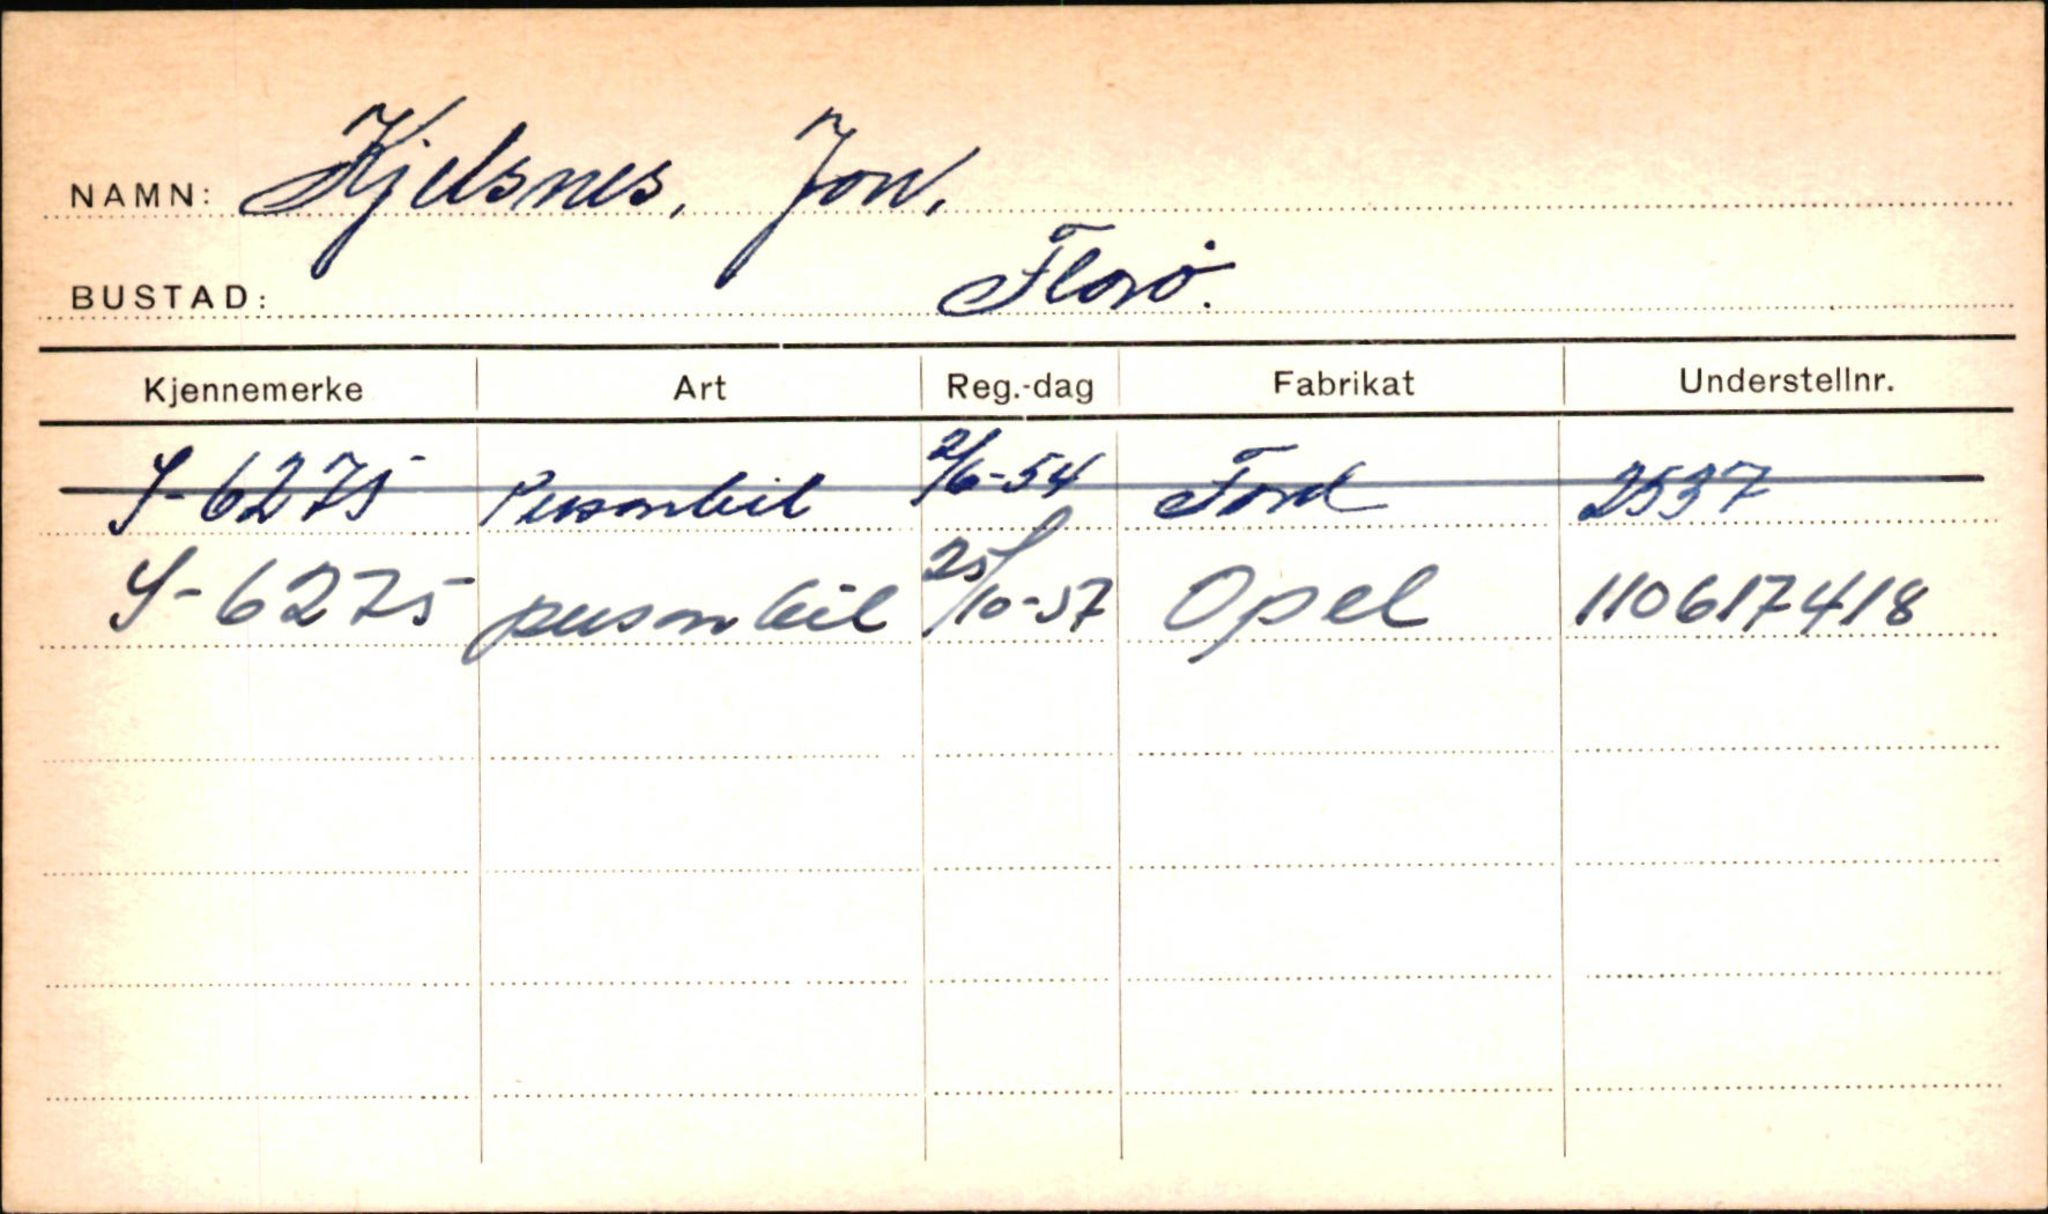 NAMN: Kjelsnes, Jon.
BUSTAD: Florø.
Kjennemerke Art Reg.-dag Fabrikat Understellnr.
S-6275 Personbil 2/6-54 Ford 2537
S-6275 personbil 25/10-57 Opel 110617418